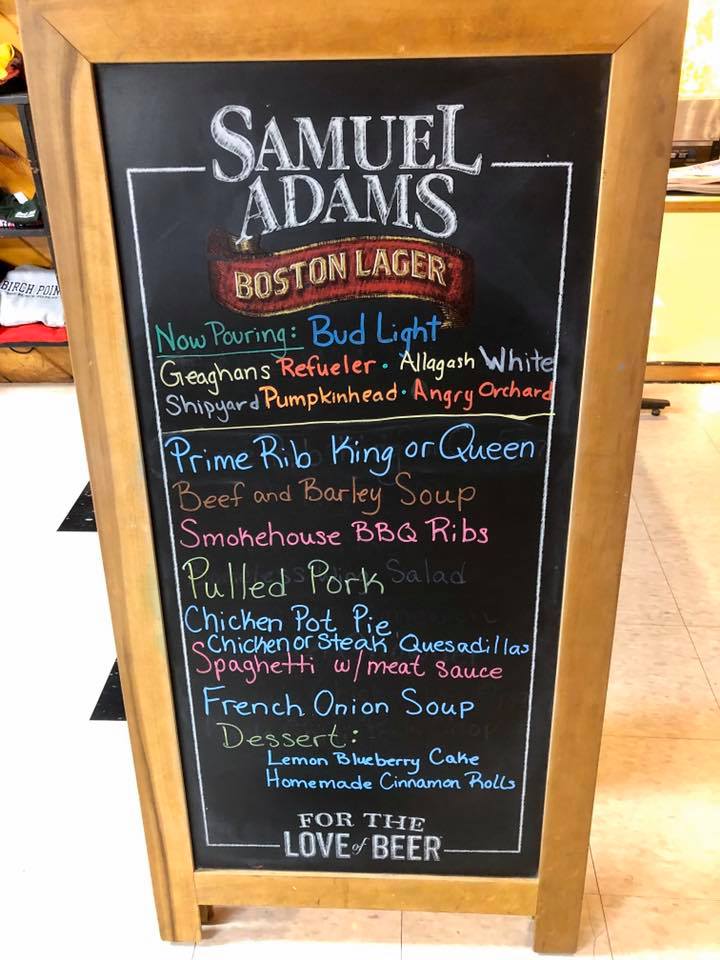 SAMUEL
ADAMS
BOSTON LAGER
Now Pouring: Bud Light
Geaghans Refueler · Allagash White
Shipyard Pumpkinhead · Angry Orchard
Prime Rib King or Queen
Beef and Barley Soup
Smokehouse BBQ Ribs
Pulled Pork Salad
Chicken Pot Pie
Chicken or Steak Quesadillas
Spaghetti w/meat sauce
French Onion Soup
Dessert:
Lemon Blueberry Cake
Homemade Cinnamon Rolls
FOR THE
LOVE of BEER
BIRCH POIN